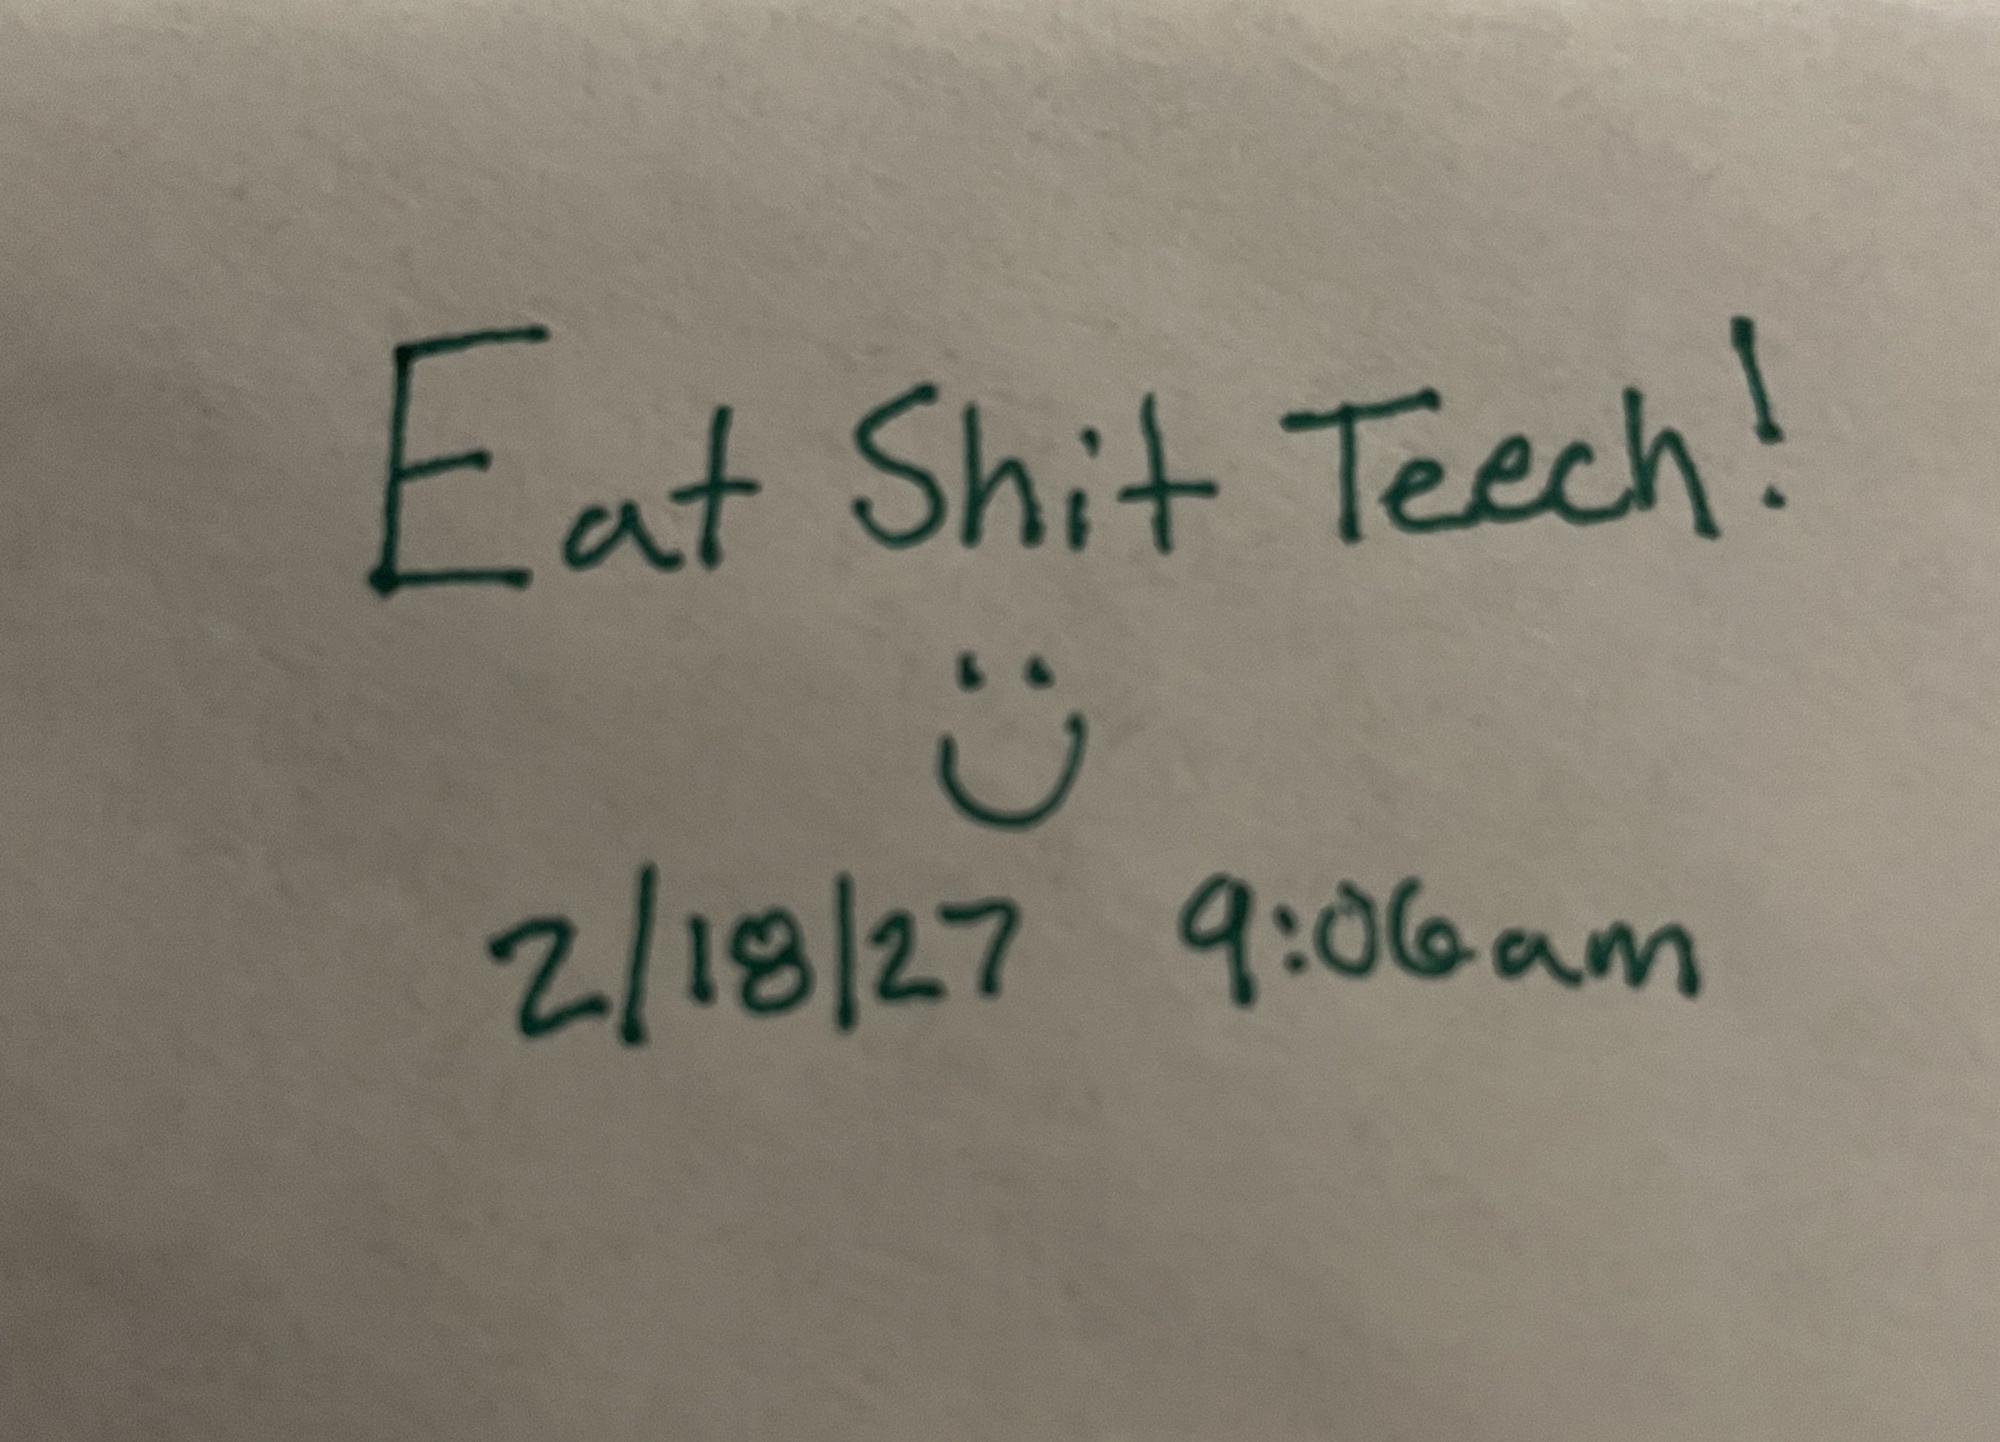 Eat Shit Teech!
2/18/27 9:06am